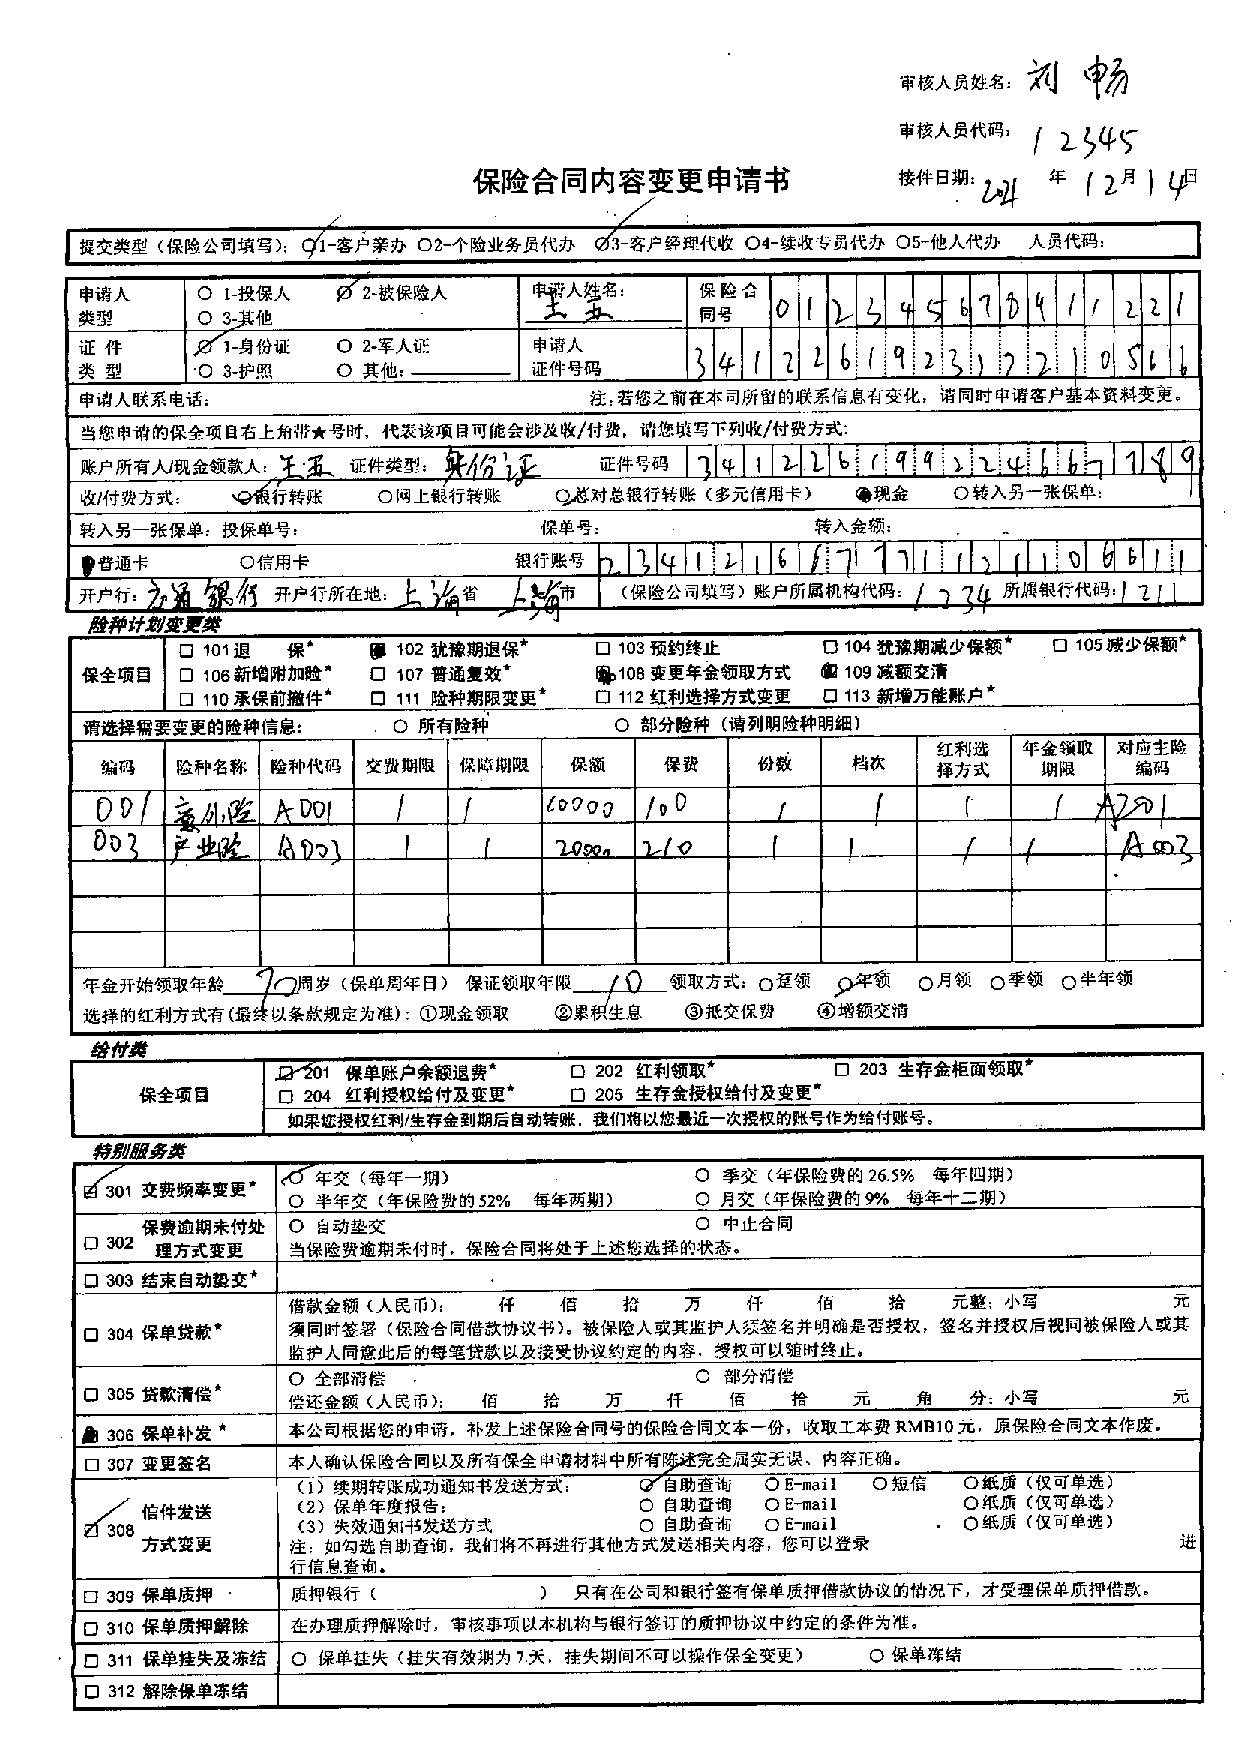 审核人员姓名：刘畅
审核人员代码：12345
保险合同内容变更申请书 接件日期：2021年12月14日
提交类型（保险公司填写）：○1-客户亲办 ○2-个险业务员代办 ○3-客户经理代收 ○4-续收专员代办 ○5-他人代办 人员代码：
申请人类型 ○ 1-投保人 ○ 2-被保险人 ○ 3-其他 申请人姓名：王五 保险合同号
证件类型 ○ 1-身份证 ○ 2-军人证 ○ 3-护照 ○ 其他： 申请人证件号码
申请人联系电话： 注：若您之前在本司所留的联系信息有变化，请同时申请客户基本资料变更。
当您申请的保全项目右上角带★号时，代表该项目可能会涉及收/付费，请您填写下列收/付费方式：
账户所有人/现金领款人：王五 证件类型：身份证 证件号码 341226199224667789
收/付费方式： ○银行转账 ○网上银行转账 ○总对总银行转账（多元信用卡） ●现金 ○转入另一张保单：
转入另一张保单：投保单号： 保单号： 转入金额：
●普通卡 ○信用卡 银行账号
开户行：交通银行 开户行所在地：上海省 上海市 （保险公司填写）账户所属机构代码：1234 所属银行代码：1211
险种计划变更类
保全项目 □ 101退 保* ■ 102 犹豫期退保* □ 103 预约终止 □ 104 犹豫期减少保额* □ 105减少保额*
□ 106新增附加险* □ 107 普通复效* ■ 108 变更年金领取方式 ■ 109 减额交清
□ 110 承保前撤件* □ 111 险种期限变更* □ 112 红利选择方式变更 □ 113 新增万能账户*
请选择需要变更的险种信息： ○ 所有险种 ○ 部分险种（请列明险种明细）
编码 险种名称 险种代码 交费期限 保障期限 保额 保费 份数 档次 红利选择方式 年金领取期限 对应主险编码
001 意外险 A001 1 1 10000 100 1 1 1 1 A2001
003 产业险 A003 1 1 20000 210 1 1 1 1 A003
年金开始领取年龄70周岁（保单周年日） 保证领取年限10 领取方式：○趸领 ○年领 ○月领 ○季领 ○半年领
选择的红利方式有(最终以条款规定为准)：①现金领取 ②累积生息 ③抵交保费 ④增额交清
给付类
保全项目 ☑ 201 保单账户余额退费* □ 202 红利领取* □ 203 生存金柜面领取*
□ 204 红利授权给付及变更* □ 205 生存金授权给付及变更*
如果您授权红利/生存金到期后自动转账，我们将以您最近一次授权的账号作为给付账号。
特别服务类
☑ 301 交费频率变更* ○ 年交（每年一期） ○ 季交（年保险费的26.5% 每年四期）
○ 半年交（年保险费的52% 每年两期） ○ 月交（年保险费的9% 每年十二期）
□ 302 保费逾期未付处理方式变更 ○ 自动垫交 ○ 中止合同
当保险费逾期未付时，保险合同将处于上述您选择的状态。
□ 303 结束自动垫交*
□ 304 保单贷款* 借款金额（人民币）： 仟 佰 拾 万 仟 佰 拾 元整；小写 元
须同时签署（保险合同借款协议书）。被保险人或其监护人须签名并明确是否授权，签名并授权后视同被保险人或其
监护人同意此后的每笔贷款以及接受协议约定的内容，授权可以随时终止。
□ 305 贷款清偿* ○ 全部清偿 ○ 部分清偿
偿还金额（人民币）： 佰 拾 万 仟 佰 拾 元 角 分；小写 元
■ 306 保单补发* 本公司根据您的申请，补发上述保险合同号的保险合同文本一份，收取工本费RMB10元，原保险合同文本作废。
□ 307 变更签名 本人确认保险合同以及所有保全申请材料中所有陈述完全属实无误、内容正确。
☑ 308 信件发送方式变更 （1）续期转账成功通知书发送方式： ○ 自助查询 ○ E-mail ○ 短信 ○ 纸质（仅可单选）
（2）保单年度报告： ○ 自助查询 ○ E-mail ○纸质（仅可单选）
（3）失效通知书发送方式 ○ 自助查询 ○ E-mail ○纸质（仅可单选）
注：如勾选自助查询，我们将不再进行其他方式发送相关内容，您可以登录 进
行信息查询。
□ 309 保单质押 质押银行（ ） 只有在公司和银行签有保单质押借款协议的情况下，才受理保单质押借款。
□ 310 保单质押解除 在办理质押解除时，审核事项以本机构与银行签订的质押协议中约定的条件为准。
□ 311 保单挂失及冻结 ○ 保单挂失（挂失有效期为7天，挂失期间不可以操作保全变更） ○ 保单冻结
□ 312 解除保单冻结